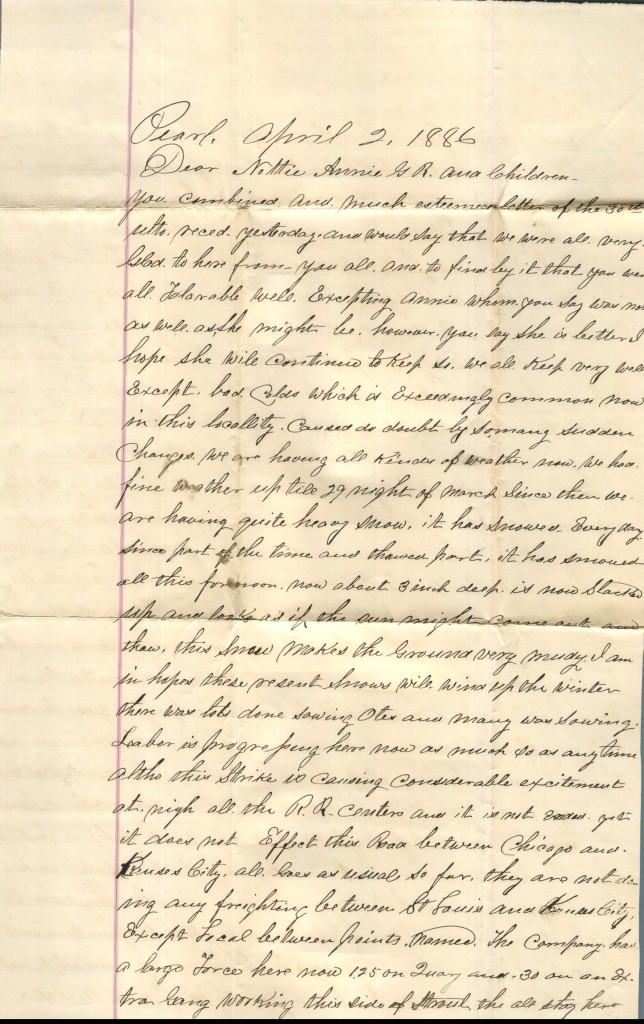 Pearl, April 2, 1886
Dear Nottie Annie G R. and Children-
You combined and much esteemed letter of the 30th
ulto. reced. yesterday. and would say that we were all very
Glad. to here from- you all. and. to find by it that you were
all. Tolarable well. Excepting Annie whom. you say was not
as well. as she might be. however. you say she is better I
hope she will continue to keep so. we all keep very well
Except. bad. Colds which is Exceedingly common now
in this locallity. Caused do doubt by somany sudden
Changes. we are having all Kinds of weather now. we had.
fine weather up till 29 night of March Since then we.
are having quite heavy snow. it has snowed Everyday.
since part of the time and thawed part. it has snowed
all this fornoon. now about 3 inch deep. is now Slacked
up and looks as if the sun might come out and
thaw. this Snow makes the Ground very mudy. I am
in hopes these resent Snows will wind up the winter
there was lots done sowing Otes and many was Sowing.
Labor is progressing here now as much so as anytime
altho this Strike is causing considerable excitement
at. nigh all the R. R. centers and it is not Ended. yet
it does not Effect this Road between Chicago and.
Kansas City. all. Goes as usual so far. they are not do
ing any freighting between St Louis and Kansas City,
Except Local between points. named. The Company. has
a large Force here now 125 on Quary and. 30 on an Ex-
tra Gang working this side of the all stay here